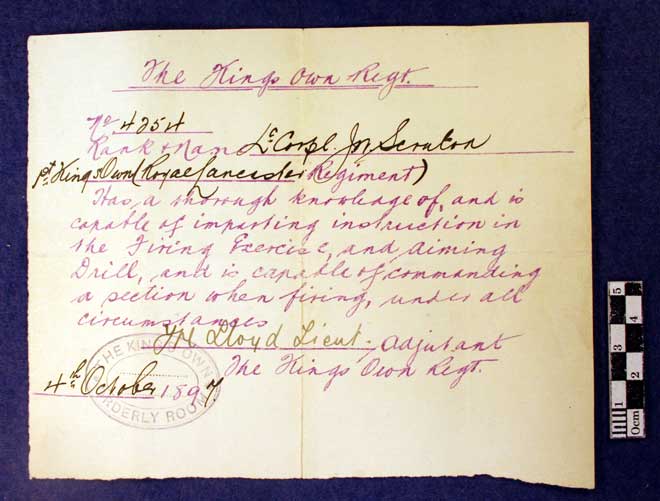 The Kings Own Regt.
No 4254
Rank & Name Lce Corpl. Jn Scruton
1st Kings Own (Royal Lancaster Regiment)
Has a thorough knowledge of, and is
capable of imparting instruction in
the Firing Exercise, and aiming
Drill, and is capable of commanding
a section when firing, under all
circumstances
Lloyd Lieut. Adjutant
The Kings Own Regt.
4th October 1897
THE KINGS OWN
ORDERLY ROOM
0cm 1 2 3 4 5